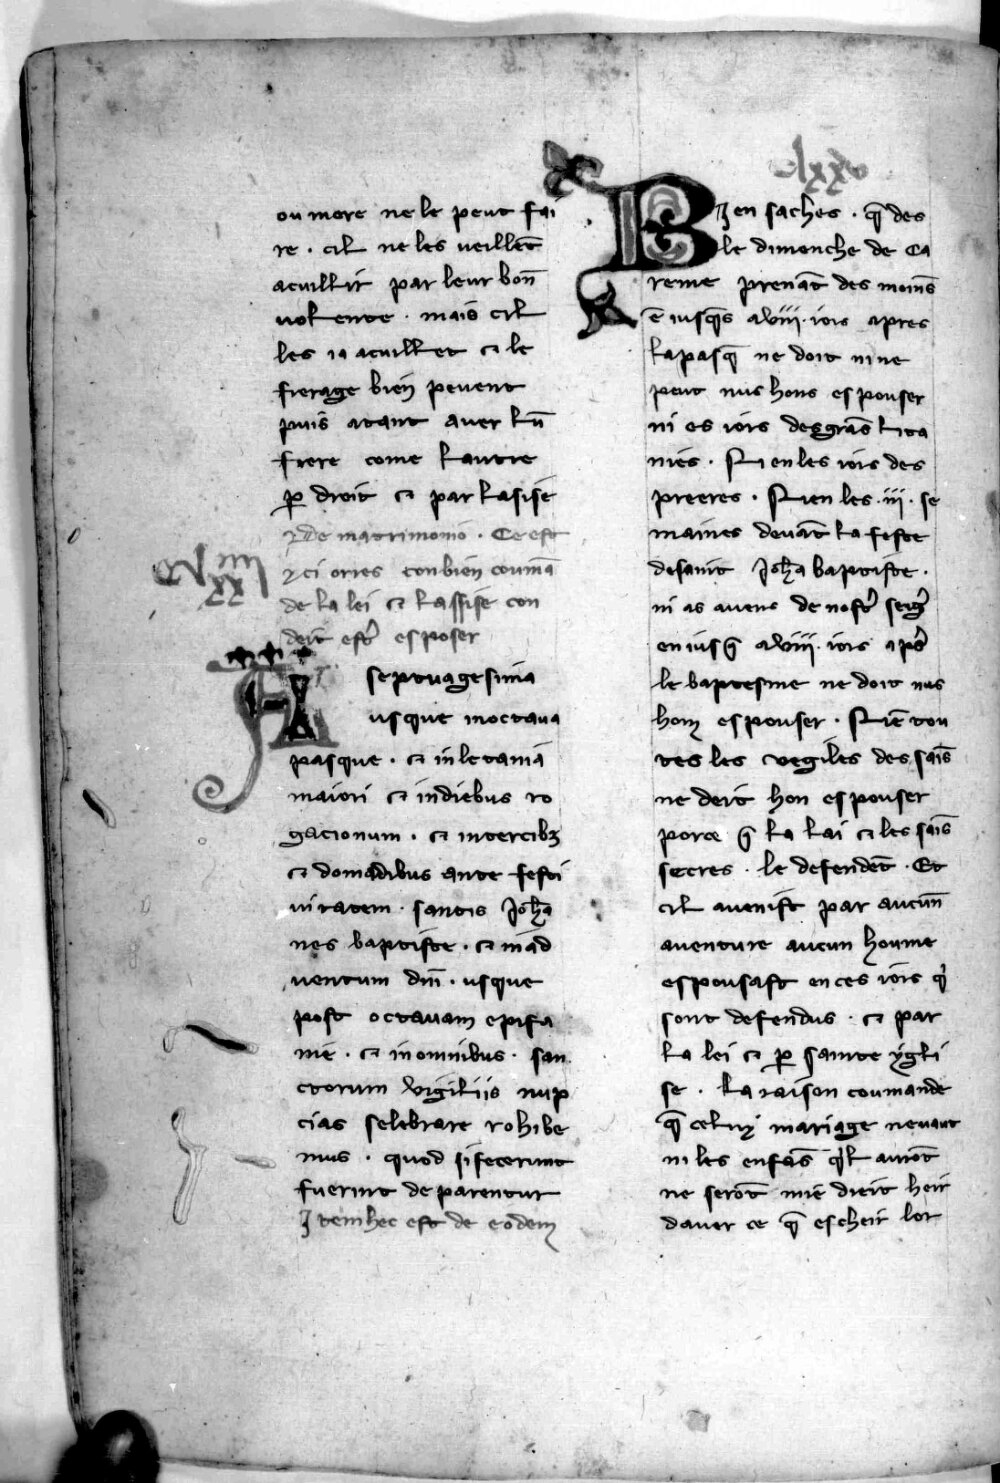 ou more ne le peut fai
re . cil ne les veillēt
acuillir par leur bon̄
volente . mais cil
les ia acuillet et le
frerage bien pevent
puis atant aver lun̄
frere come lautre
p̱ droit et par lasise
De matrimonio . Ce est
yci orres conbien coumā
de la lei et lassise con
doit estͬ esposer
A septuagesima
usque in octava
pasque . et in letaniā
maiori et in diebus ro
gacionum . et in tercibꝫ
et domadibus ante festi
vitatem . santis Joh̄a
nes baptiste . et in ad
ventum dn̄i . usque
post octavam epifa
nie . et in omnibus . san
ctorum vigiliis nup
cias selebrare rohibe
mus . quod si fecerunt
fuerint de parentur
Item hec est de eodem
lxxv
Bien saches . q̄ des
le dimenche de Ca
reme prenāt des moins
ē iusq̄s a viii . iors apres
la pasq̄ ne doit ni ne
peut nus hons espouser
ni es iors des grās leta
nies . Ni en les iors des
preeres . Ni en les . iii . se
maines devāt la feste
de saint Joh̄a baptiste .
ni as avens de nostͬ seigͬ
en iusq̄ a viii . iors apͬs
le baptesme ne doit nus
hom espouser . Ni ē tou
tes les vegiles des sais̄
ne deit hon espouser
porce q̄ la lai et les sais̄
secres . le defendēt . Et
cil avenist par aucun̄
aventure aucun houme
espousast en ces iors qͥ
sont defendus . et par
la lei et p̱ sainte ygli
se . la raison coumande
q̄ celuy mariage ne vaut
ni les enfās qͥl aurōt
ne serōt mie dreit heir
daver ce q̄ escheir lor